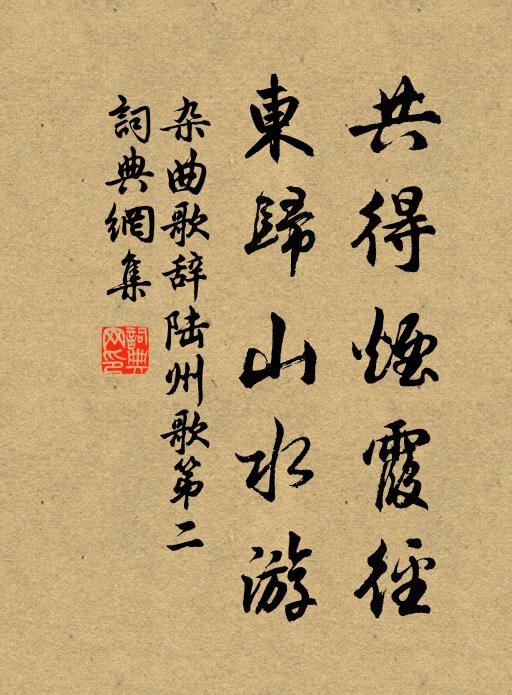 共得煙霞徑
東歸山水游
杂曲歌辞陆州歌第二
詞典網集
詞典網印